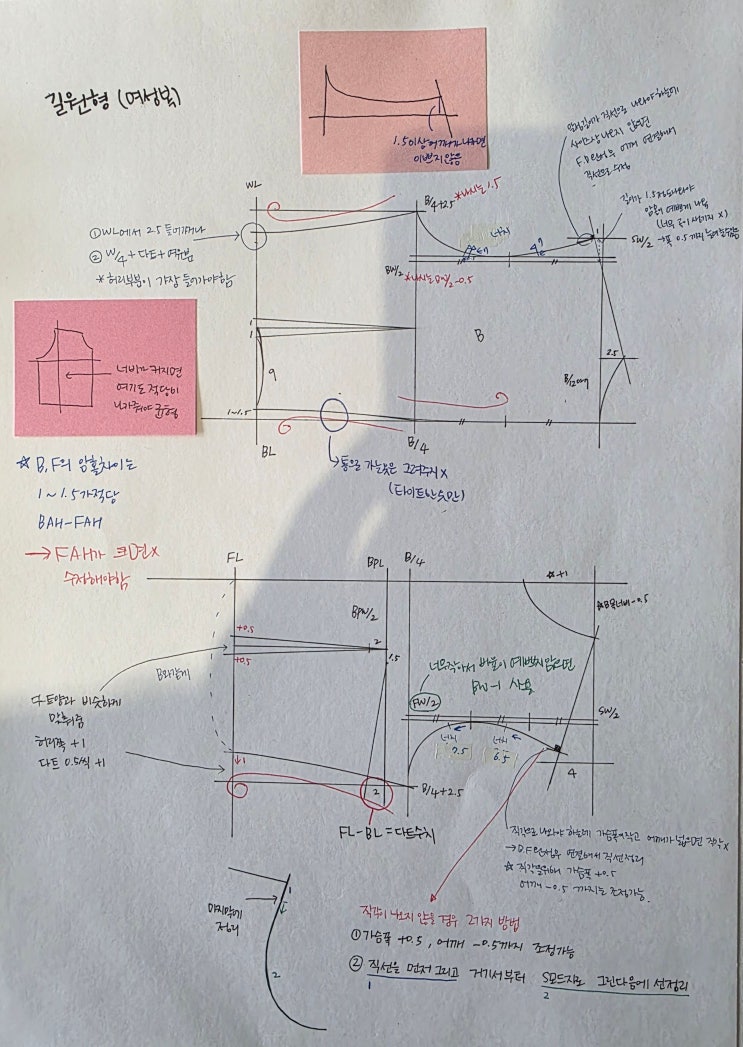 길원형 (여성복)
1.5이상 어깨가 나오면
이쁘지 않음
직선으로 나와야 하는데
사이즈상 나오지 않으면
어깨 연결해서
직선으로 수정
WL
B/4+2.5
*나시는 1.5
너치
SW/2
→폭 0.5 까지
①WL에서 2.5 들어가거나
② W/4 + 다트 + 여유분
*허리부분이 가장 들어가야함
BW/2
*나시는 BW/2-0.5
1
1
9
B
2.5
B/12
1~1.5
BL
B/4
너비가 커지면
여기도 적당히
나가줘야 균형
→통으로 가는옷은 그려주지 X
(타이트한 옷만)
☆ B, F의 암홀차이는
1~1.5가 적당
BAH-FAH
→ FAH가 크면 X
수정해야함
FL
BPL
B/4
☆+1
BP/2
☆B목너비-0.5
+0.5
+0.5
2
1.5
B와 같게
너무 작아서 바꿈이 예쁘지 않으면
BW-1 사용
FW/2
SW/2
너치
7.5
너치
6.5
다트양과 비슷하게
맞춰줌
허리쪽 +1
다트 0.5씩 +1
↓1
2
B/4+2.5
4
FL-BL=다트수치
직각으로 나와야 하는데 가슴폭이 작고 어깨가 넓으면 직각X
연결해서 직선정리
☆ 직각을 위해 가슴폭 +0.5
어깨 -0.5 까지는 조정가능.
1
마지막에
정리
2
직각이 나오지 않을 경우 2가지 방법
① 가슴폭 +0.5, 어깨 -0.5까지 조정가능
② 직선을 먼저 그리고 거기서부터 S모드자로 그린다음에 선정리
1
2